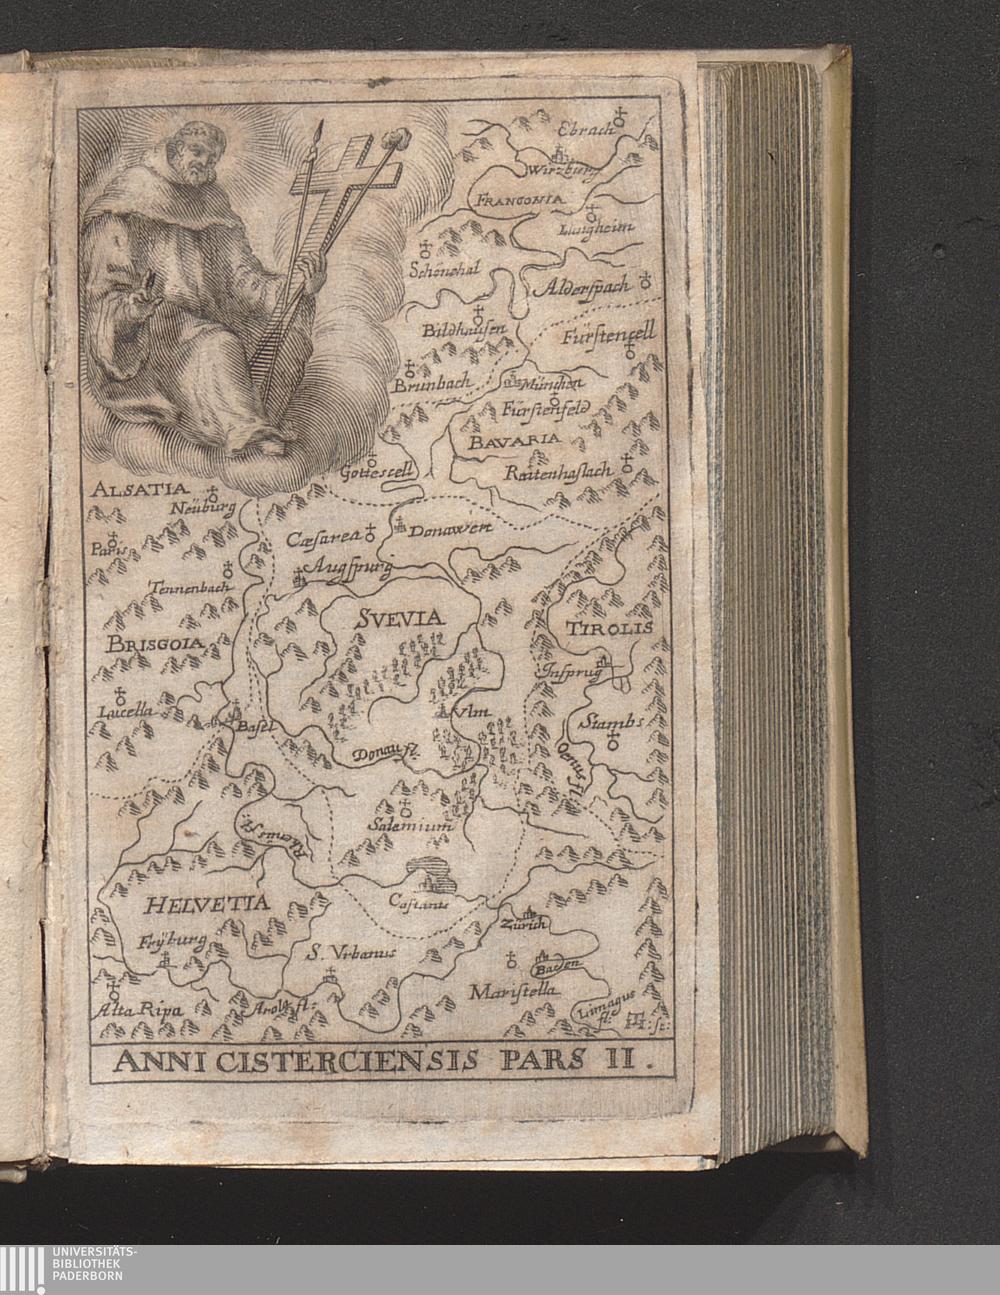 Ebrach
Wirzburg
FRANCONIA
Schönthal
Alderspach
Bildhausen
Fürstencell
Brunbach
München
Fürstenfeld
BAVARIA
Gottescell
Raitenhaslach
ALSATIA
Neüburg
Cæsarea
Donawert
Paris
Augspurg
Tennenbach
SVEVIA
TIROLIS
BRISGOIA
Insprug
Lucella
Vlm
Stambs
Basel
Donau fl.
Oenus fl.
Salemium
Rhenus fl.
HELVETIA
Costantz
Zürich
Frÿburg
S. Vrbanus
Baden
Maristella
Alta Ripa
Arola fl:
Limagus
fl.
ANNI CISTERCIENSIS PARS II.
UNIVERSITÄTS-
BIBLIOTHEK
PADERBORN